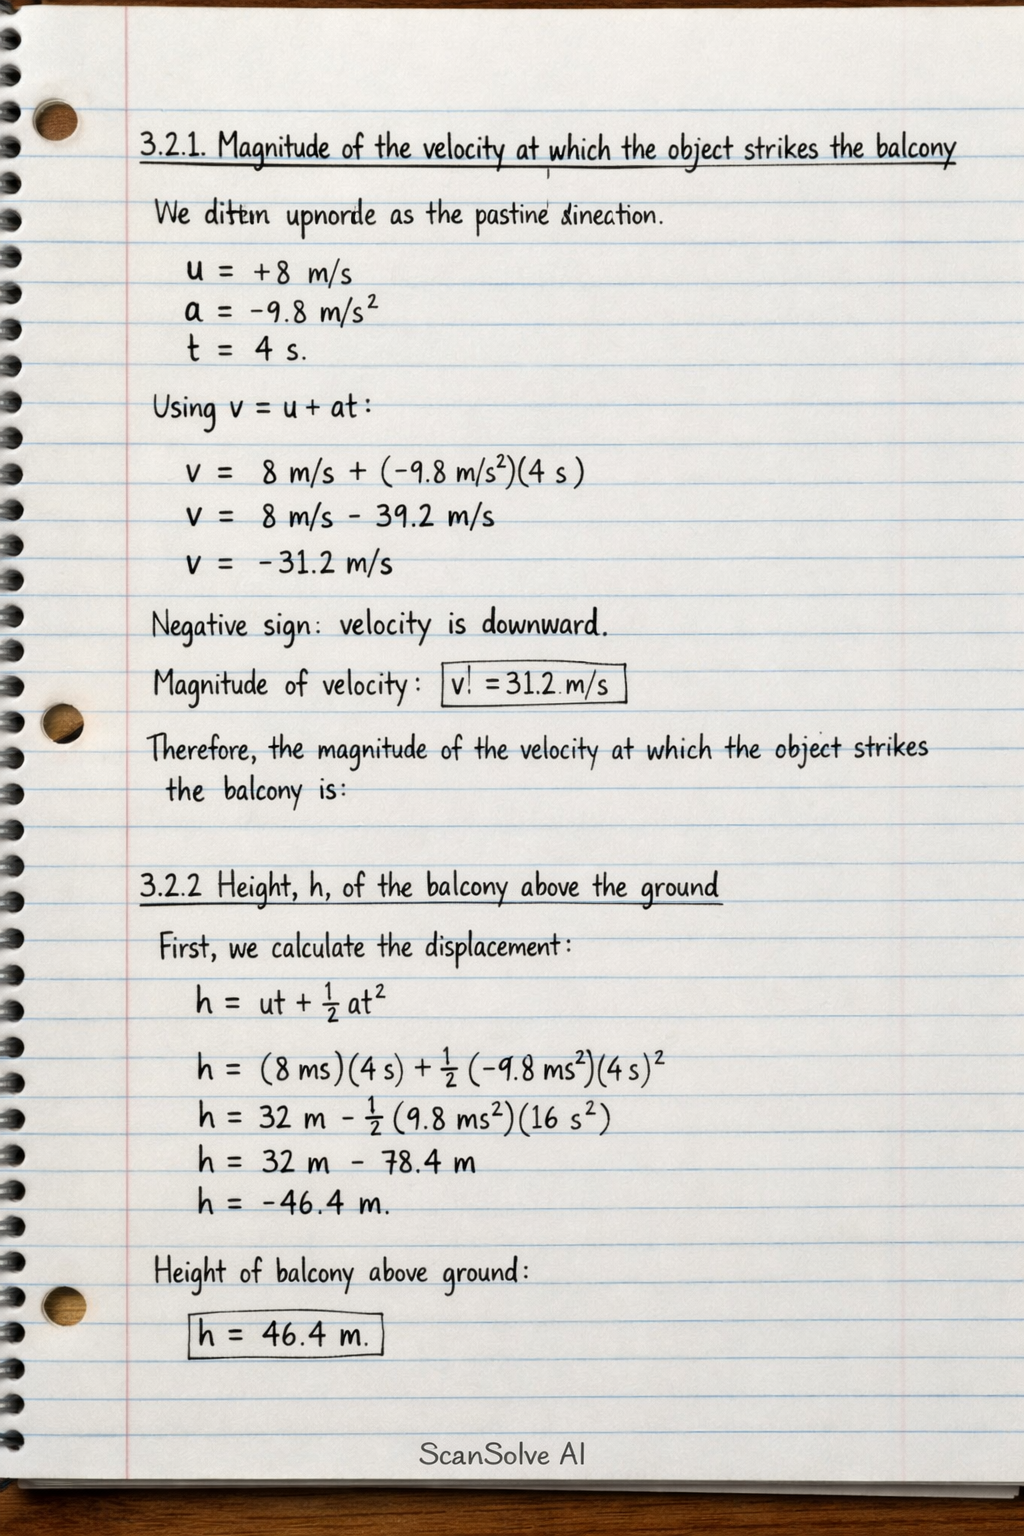 3.2.1. Magnitude of the velocity at which the object strikes the balcony
We as the direction.
u = +8 m/s
a = -9.8 m/s²
t = 4 s.
Using v = u + at:
v = 8 m/s + (-9.8 m/s²)(4 s)
v = 8 m/s - 39.2 m/s
v = -31.2 m/s
Negative sign: velocity is downward.
Magnitude of velocity: v! = 31.2 m/s
Therefore, the magnitude of the velocity at which the object strikes
the balcony is:
3.2.2 Height, h, of the balcony above the ground
First, we calculate the displacement:
h = ut + ½ at²
h = (8 ms)(4 s) + ½ (-9.8 ms²)(4 s)²
h = 32 m - ½ (9.8 ms²)(16 s²)
h = 32 m - 78.4 m
h = -46.4 m.
Height of balcony above ground:
h = 46.4 m.
ScanSolve AI